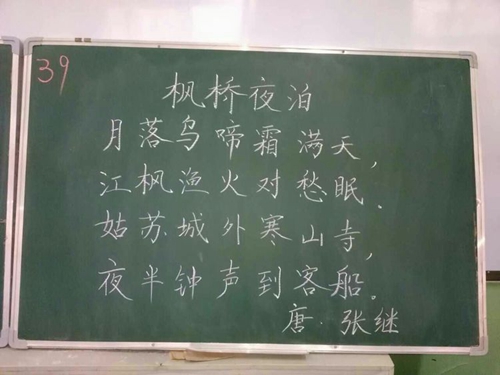 39
枫桥夜泊
月落乌啼霜满天，
江枫渔火对愁眠．
姑苏城外寒山寺，
夜半钟声到客船。
唐．张继